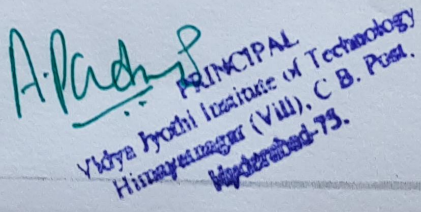 A. Padm
PRINCIPAL
Vidya Jyothi Institute of Technology
Himayatnagar (Vill), C B. Post.
Hyderabad-75.